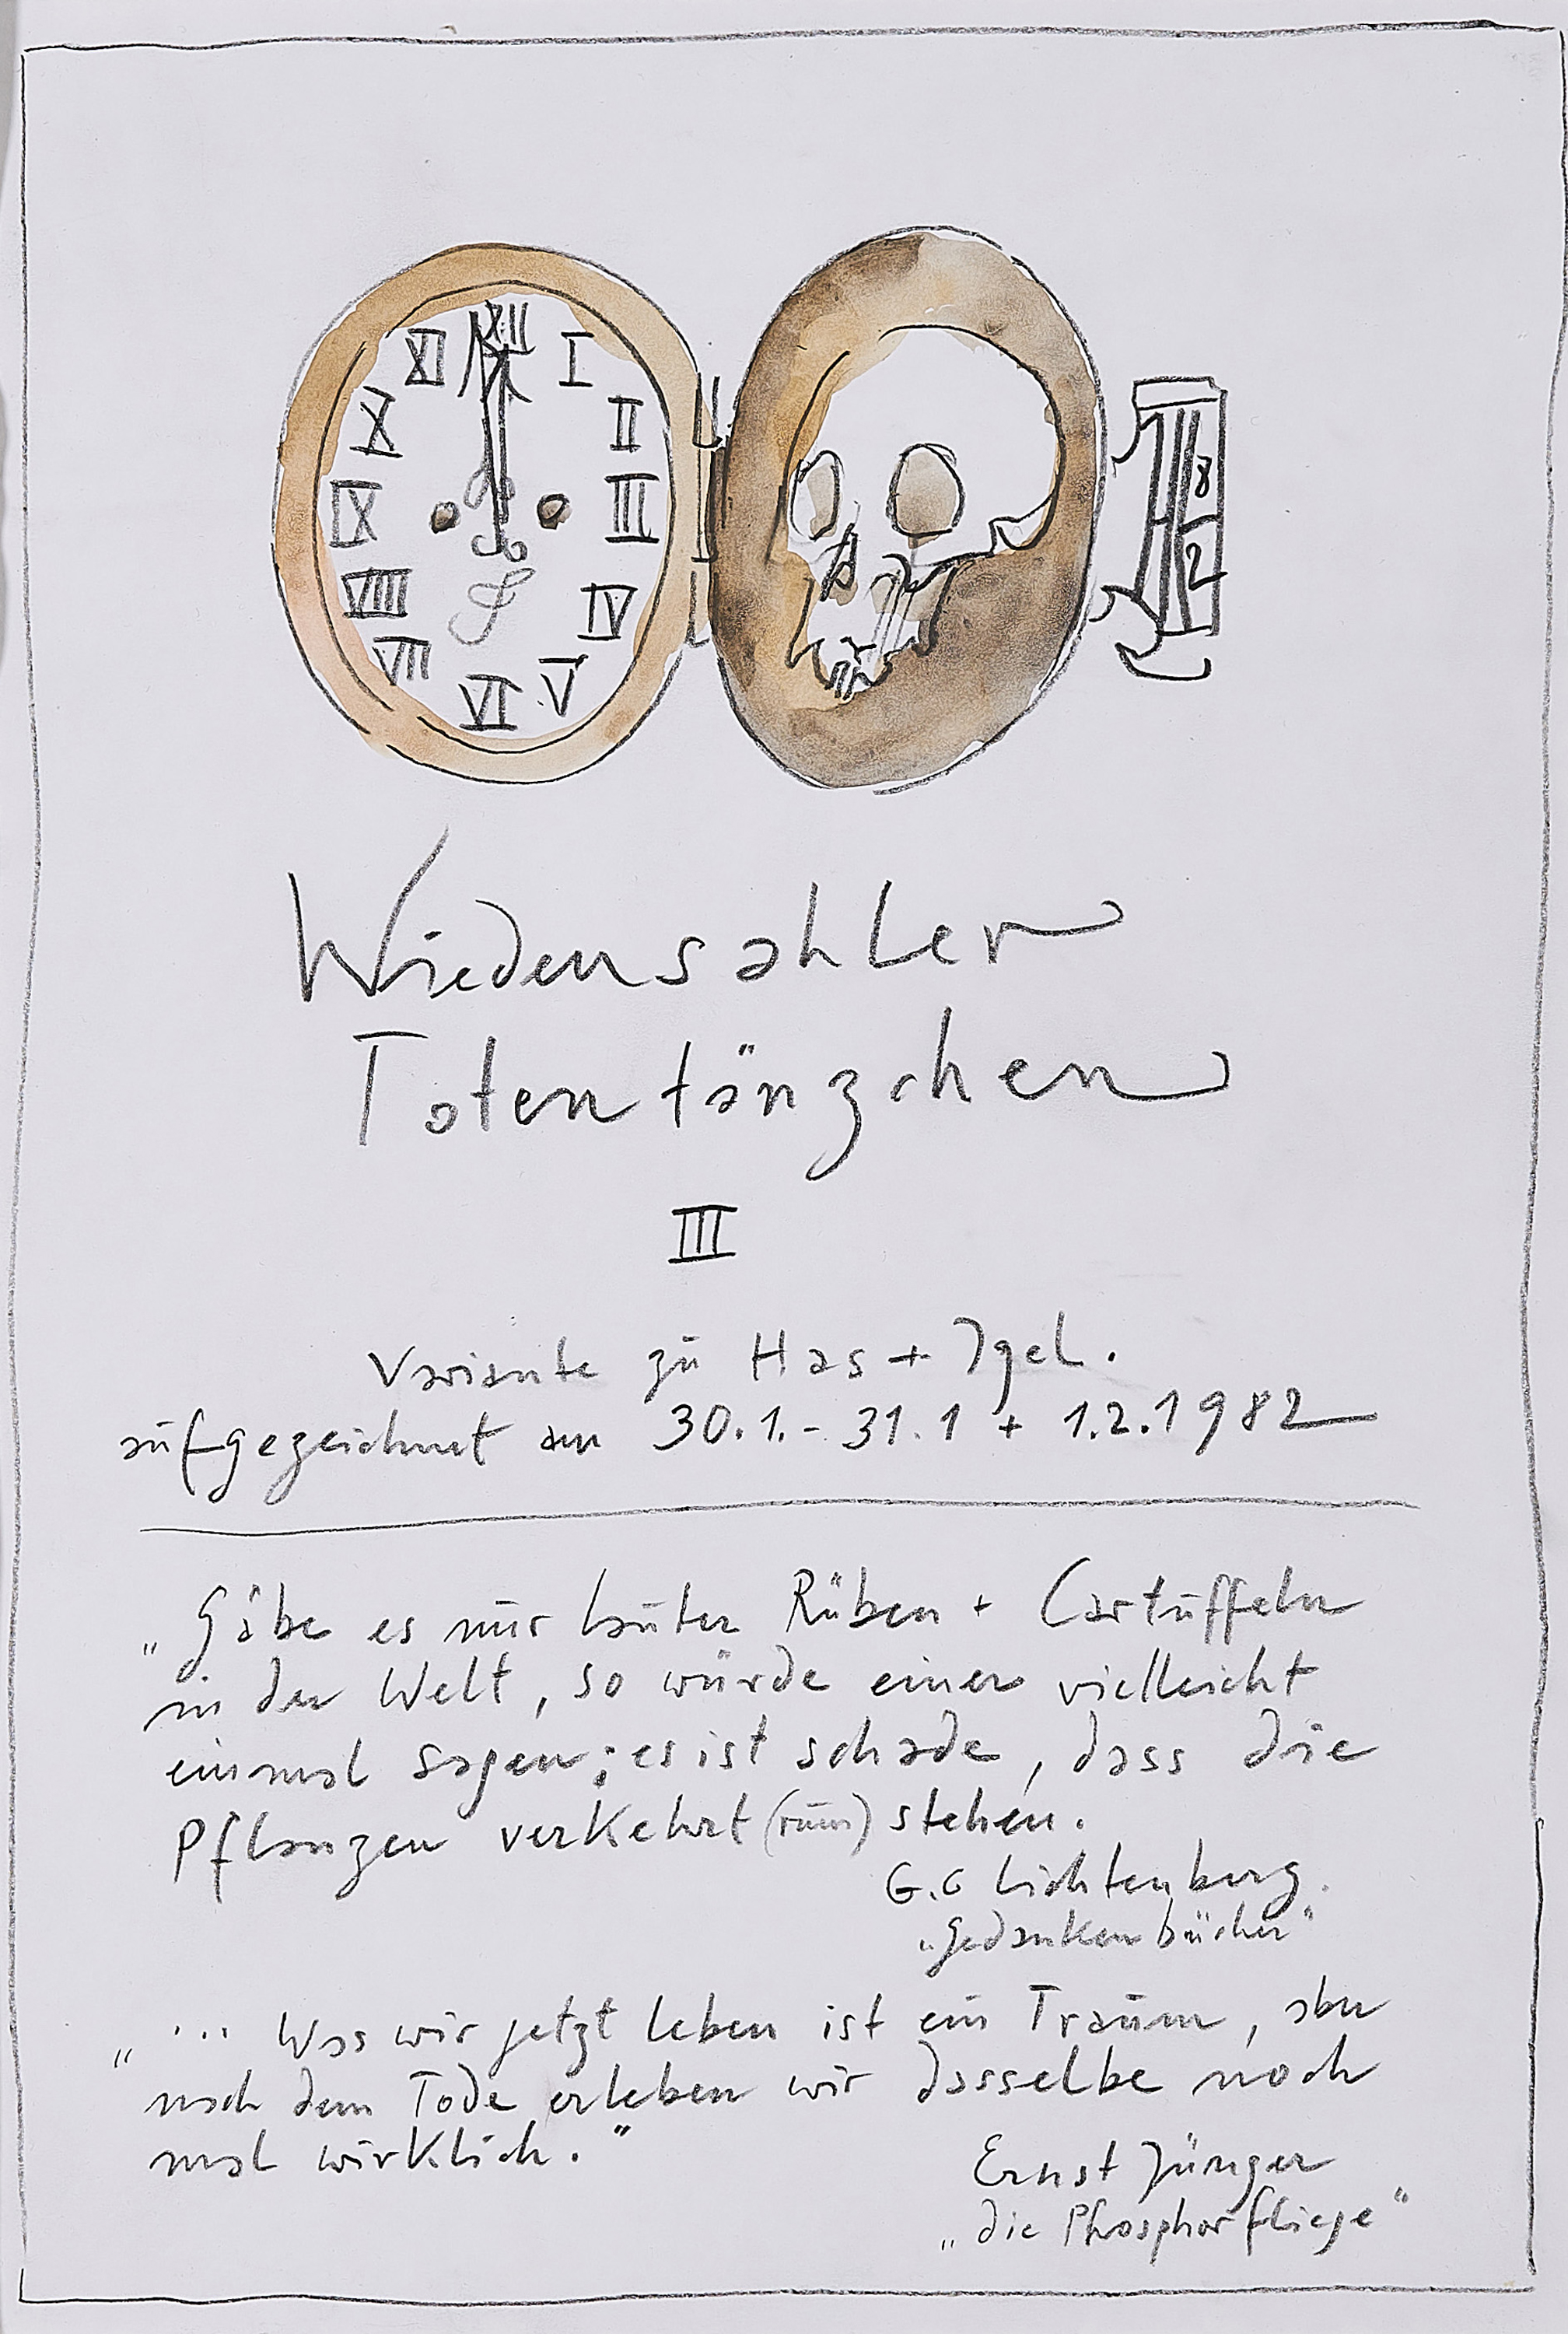 XII
XI I
X II
IX III
VIII IV
VII V
VI
8
2
Wiedensahler
Totentänzchen
III
Variante zu Has + Igel.
aufgezeichnet am 30.1.- 31.1 + 1.2.1982
„Gäbe es nur lauter Rüben + Cartuffeln
in der Welt, so würde einer vielleicht
einmal sagen; es ist schade, dass die
Pflanzen verkehrt (rum) stehen.
G.C Lichtenberg.
„Gedankenbücher"
„... Was wir jetzt leben ist ein Traum, aber
nach dem Tode erleben wir dasselbe noch
mal wirklich."
Ernst Jünger
„die Phosphorfliege"